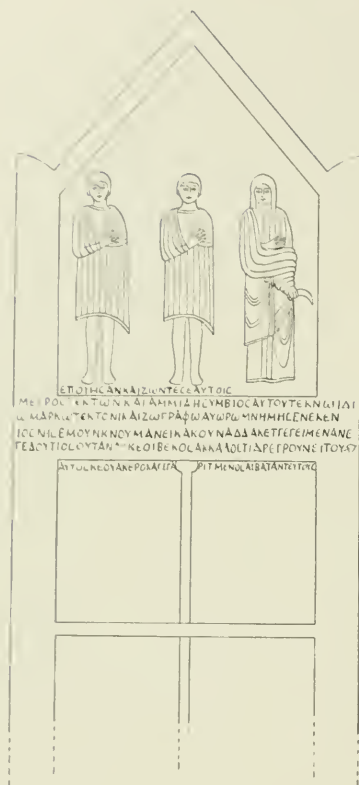 ΕΠΟΙΗCΑΝΚΑΙΖΙѠΝΤΕCΕΑΥΤΟΙC
ΜΕΙΡΟCΤΕΚΤѠΝΚΑΙΑΜΜΙΑΗCΥΜΒΙΟCΑΥΤΟΥΤΕΚΝѠΙΙΔΙ
ѠΜΑΡΚѠΤΕΚΤΟΝΙΚΑΙΖѠΓΡΑΦѠΑѠΡѠΜΝΗΜΗCΕΝΕΚΕΝ
ΙΟCΝΙCΕΜΟΥΝΚΝΟΥΜΑΝΕΙΚΑΚΟΥΝΑΔΔΑΚΕΤΓΕΓΕΙΜΕΝΑΝΕ
ΓΕΔΟΥΤΙΟCΟΥΤΑΝ ΚΕΟΙΒΕΚΟCΑΚΚΑΛΟCΤΙΔΡΕΓΡΟΥΝΕΙΤΟΥ
ΑΥΤΟCΚΕΟΥΑΚΕΡΟΚΑΓΙΓΑ ΡΙΤΜΕΝΟCΑΙΒΑΤΑΝΤΕΥΤΟΥC